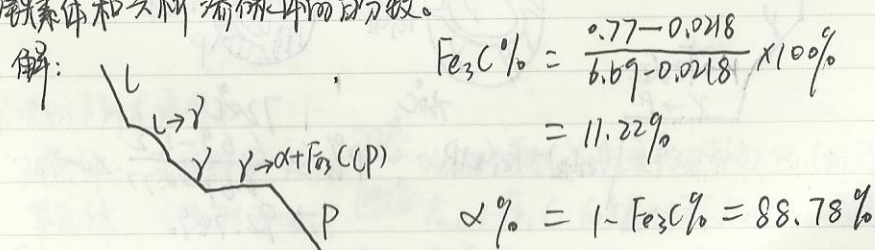 铁素体和共析渗碳体的百分数。
解:
L
L→γ
γ
γ→α+Fe3C(P)
P
Fe3C% = (0.77-0.0218)/(6.69-0.0218) ×100%
= 11.22%
α% = 1-Fe3C% = 88.78%